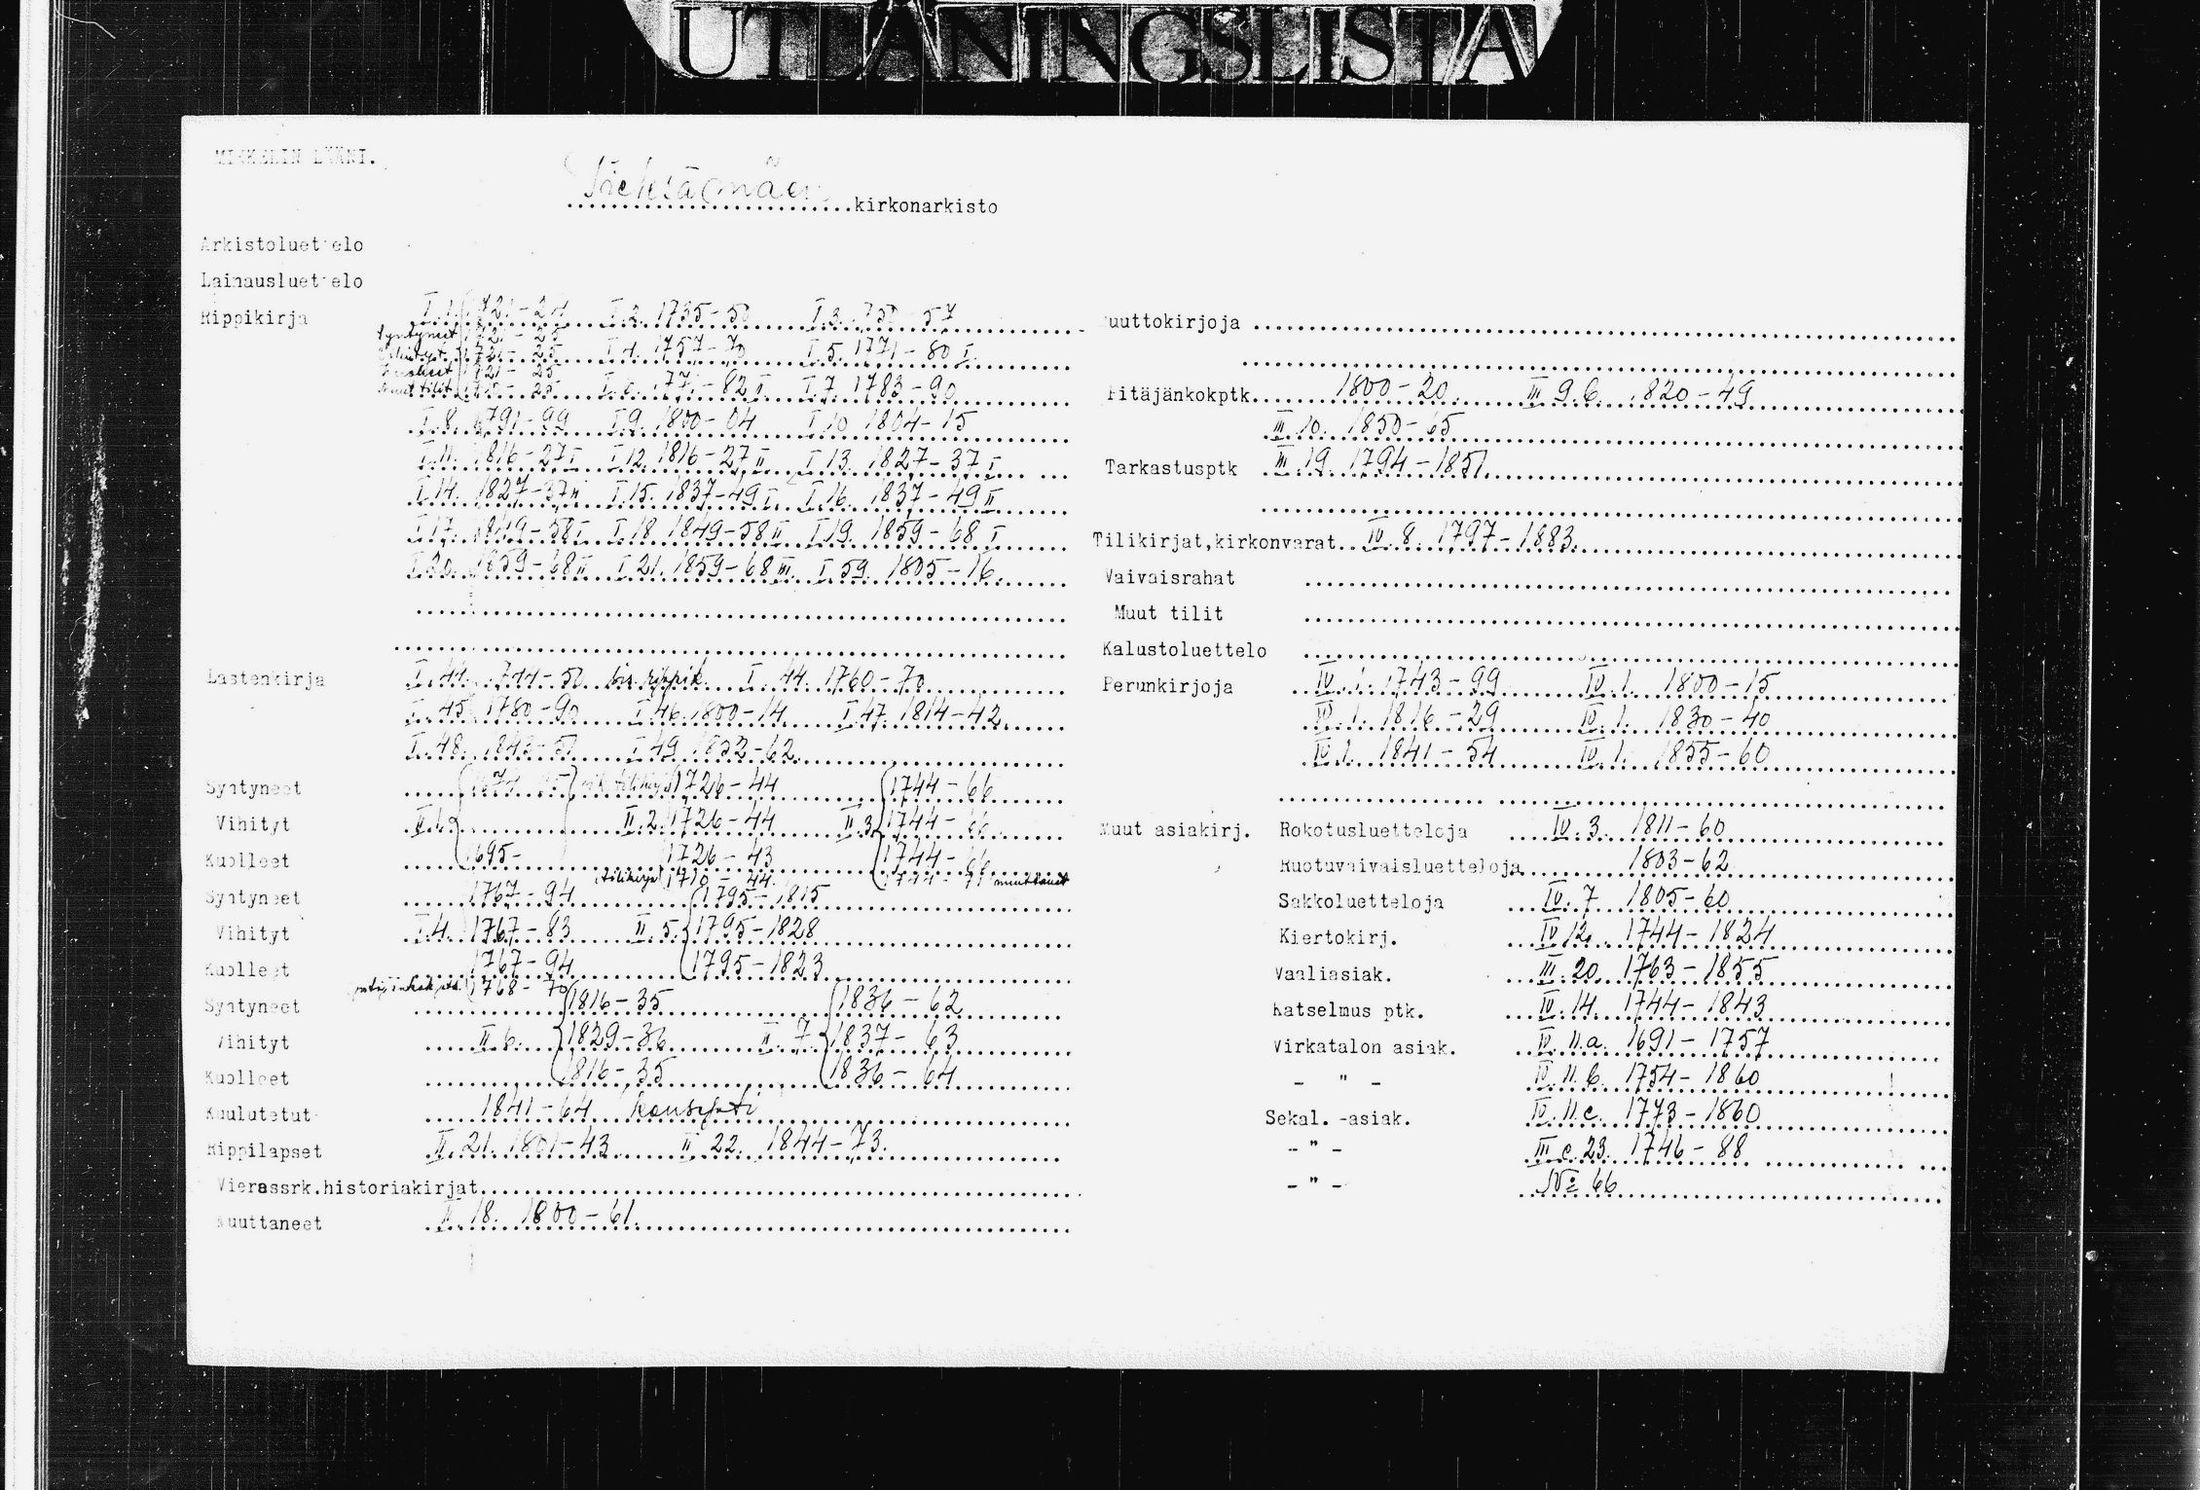 UTLÅNINGSLISTA
MIKKELIN LÄÄNI.
Pieksämäen kirkonarkisto
Arkistoluettelo
Lainausluettelo
Rippikirja I.1. 1721-24 I.2. 1735-50 I.3. 1750-57
Syntyneet 1721-25
Vihityt 1721-25 I.4. 1757-70 I.5. 1771-80 I.
Kuolleet 1721-25
Muut tilit 25 I.6. 1771-82 II I.7. 1783-90
I.8. 1791-99 I.9. 1800-04 I.10 1804-15
I.11. 1816-27 I I.12. 1816-27 II I.13. 1827-37 I
I.14. 1827-37 II I.15. 1837-49 I I.16. 1837-49 II
I.17. 1849-58 I I.18 1849-58 II I.19. 1859-68 I
I.20. 1859-68 II I.21. 1859-68 III I.59. 1805-16.
Lastenkirja I.44. 1744-50 rippik. I.44. 1760-70
I.45 1780-90 I.46. 1800-14 I.47. 1814-42
I.48. 1843-51 I.49. 1852-62.
Syntyneet tilikirja 1726-44 1744-66
Vihityt II.1. II.2. 1726-44 II.3. 1744-66
Kuolleet 1695- 1726-43 1744-66
tilikirja 1710-44. muuttaneet
Syntyneet 1767-94 1795-1815
Vihityt I.4. 1767-83 II.5. 1795-1828
Kuolleet 1767-94 1795-1823
pitäjänkok.ptk. 1768-70
Syntyneet 1816-35 1836-62
Vihityt II.6. 1829-36 II.7. 1837-63
Kuolleet 1816-35 1836-64
Kuulutetut 1841-64 konsepti
Rippilapset II.21. 1801-43 II.22. 1844-73.
Vierassrk.historiakirjat
Muuttaneet II.18. 1800-61.
Muuttokirjoja
Pitäjänkokptk. 1800-20. III 9.b. 1820-49
III.10. 1850-65
Tarkastusptk III.19. 1794-1851.
Tilikirjat,kirkonvarat. IV.8. 1797-1883.
Vaivaisrahat
Muut tilit
Kalustoluettelo
Perunkirjoja IV.1. 1743-99 IV.1. 1800-15
IV.1. 1816-29 IV.1. 1830-40
IV.1. 1841-54 IV.1. 1855-60
Muut asiakirj. Rokotusluetteloja IV.3. 1811-60
Ruotuvaivaisluetteloja 1803-62
Sakkoluetteloja IV.7 1805-60
Kiertokirj. IV 12. 1744-1824
Vaaliasiak. III.20. 1763-1855
Katselmus ptk. IV.14. 1744-1843
Virkatalon asiak. IV.11.a. 1691-1757
- " - IV.11.b. 1754-1860
Sekal.-asiak. IV.11.c. 1773-1860
- " - III c.23. 1746-88
- " - No 66